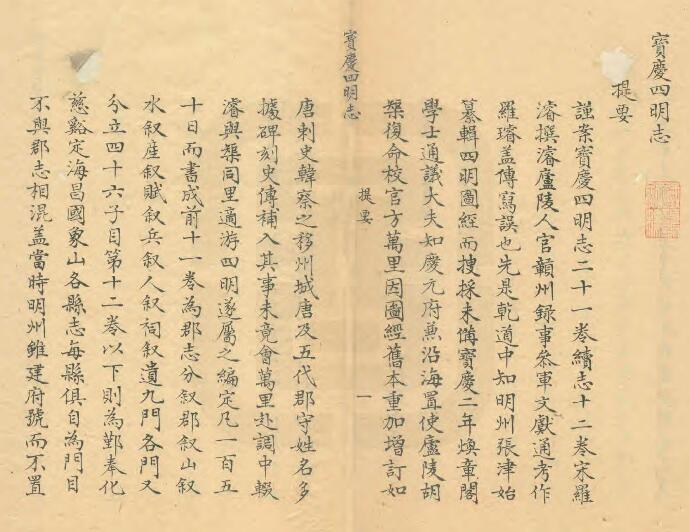 寶慶四明志
提要
謹案寶慶四明志二十一卷續志十二卷宋羅
濬撰濬廬陵人官贛州録事參軍文獻通考作
羅璿盖傳寫誤也先是乾道中知明州張津始
纂輯四明圖經而搜採未備寶慶二年煥章閣
學士通議大夫知慶元府兼沿海置使廬陵胡
榘復命校官方萬里因圖經舊本重加增訂如
寶慶四明志
提要
一
唐刺史韓察之移州城唐及五代郡守姓名多
據碑刻史傳補入其事未竟會萬里赴調中輟
濬與榘同里適游四明遂屬之編定凡一百五
十日而書成前十一卷為郡志分叙郡叙山叙
水叙産叙賦叙兵叙人叙祠叙遺九門各門又
分立四十六子目第十二卷以下則為鄞奉化
慈谿定海昌國象山各縣志每縣俱自為門目
不與郡志相混盖當時明州雖建府號而不置